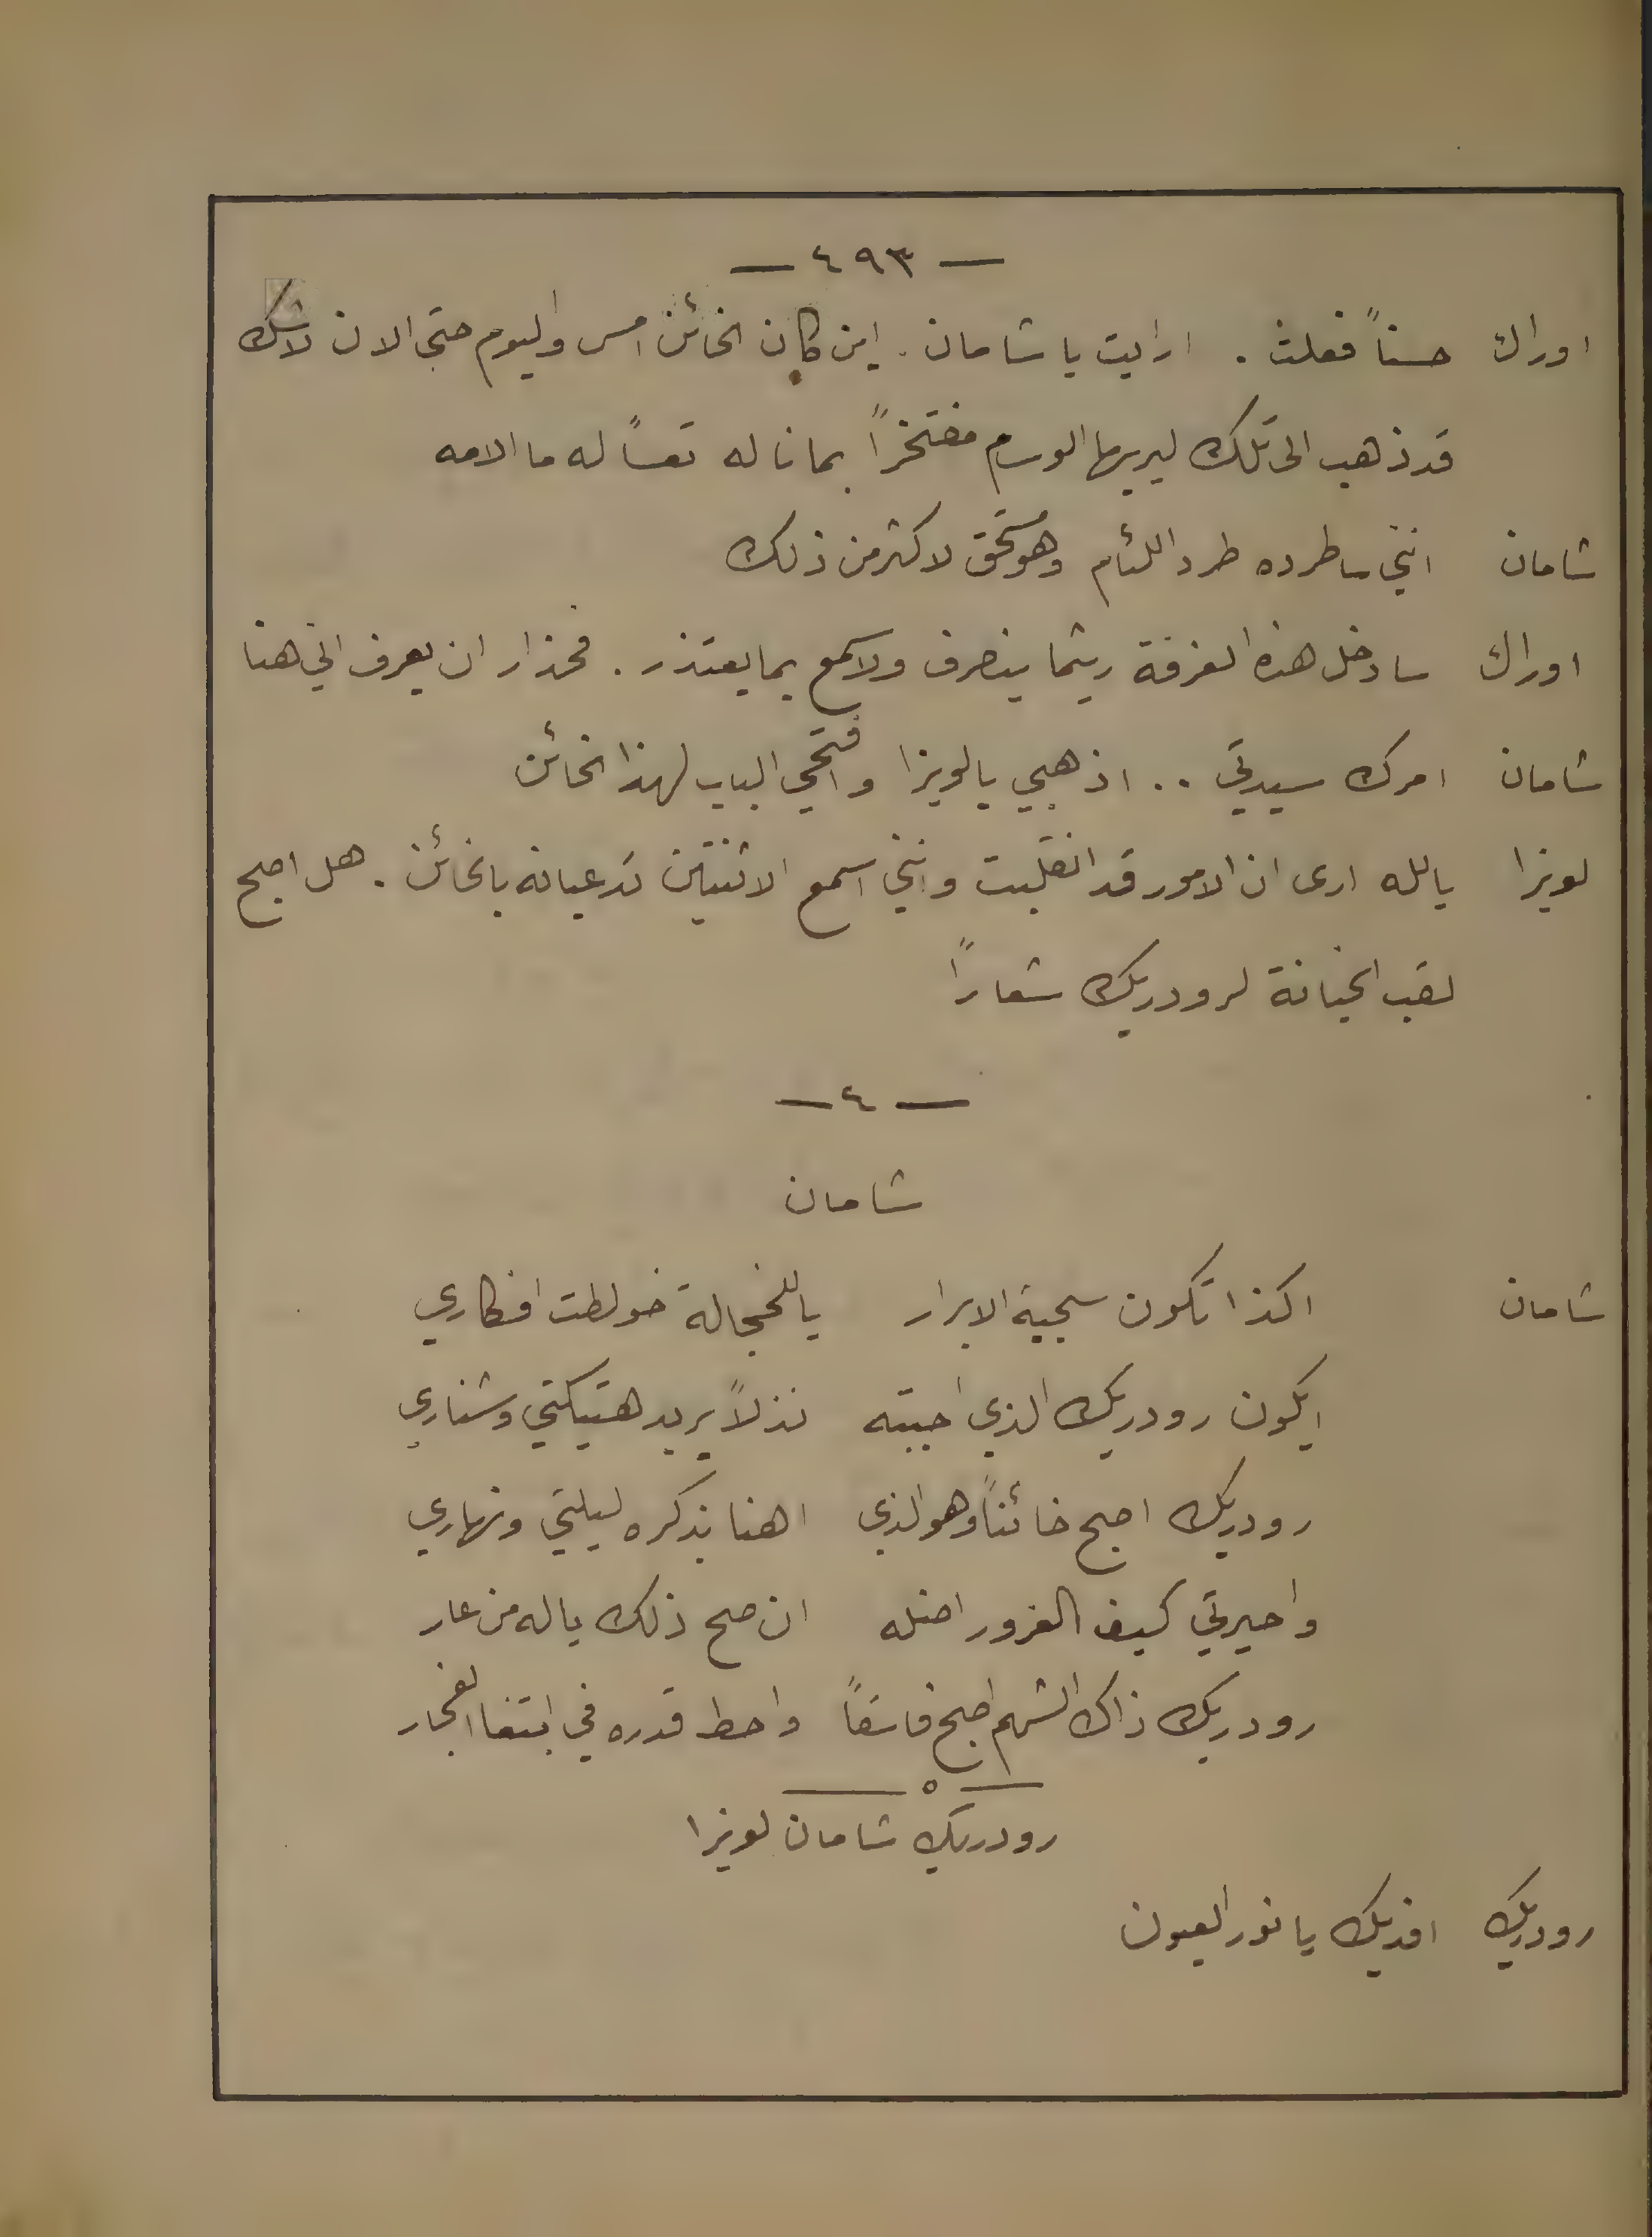 — ٤٩٣ —
اوراك حسناً فعلت . ارايت يا شامان . اين كان الخائن امس واليوم حتى الان لا شك
قد ذهب الى تلك ليريها الوسام مفتخراً بما ناله تعساً له ما الامه
شامان انني ساطرده طرد اللئام وهو مستحق لاكثر من ذلك
اوراك سادخل هذه الغرفة ريثما ينصرف ولاسمع بما يعتذر . فحذار ان يعرف اني هنا
شامان امرك سيدتي .. اذهبي يا لويزا وافتحي الباب لهذا الخائن
لويزا يالله ارى ان الامور قد انقلبت وانني اسمع الاثنتين تدعيانه بالخائن . هل اصبح
لقب الخيانة لرودريك شعاراً
— ٤ —
شامان
شامان اكذا تكون سجية الابرار ياللخجالة خولطت افكاري
ايكون رودريك الذي احببته نذلاً يريد هتيكتي وشناري
رودريك اصبح خائناً وهو الذي اهنا بذكره ليلتي ونهاري
واحيرتي كيف الغرور اضله ان صح ذلك ياله من عار
رودريك ذاك الشهم اصبح فاسقاً واحط قدره في ابتغا الفجار
— ٥ —
رودريك شامان لويزا
رودريك افديك يا نور العيون